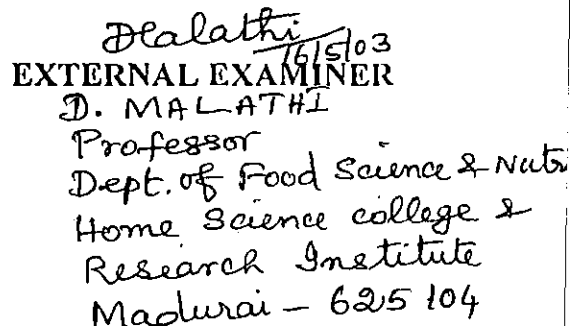 Malathi
16/5/03
EXTERNAL EXAMINER
D. MALATHI
Professor
Dept. of Food Science & Nutri
Home Science college &
Research Institute
Madurai - 625 104